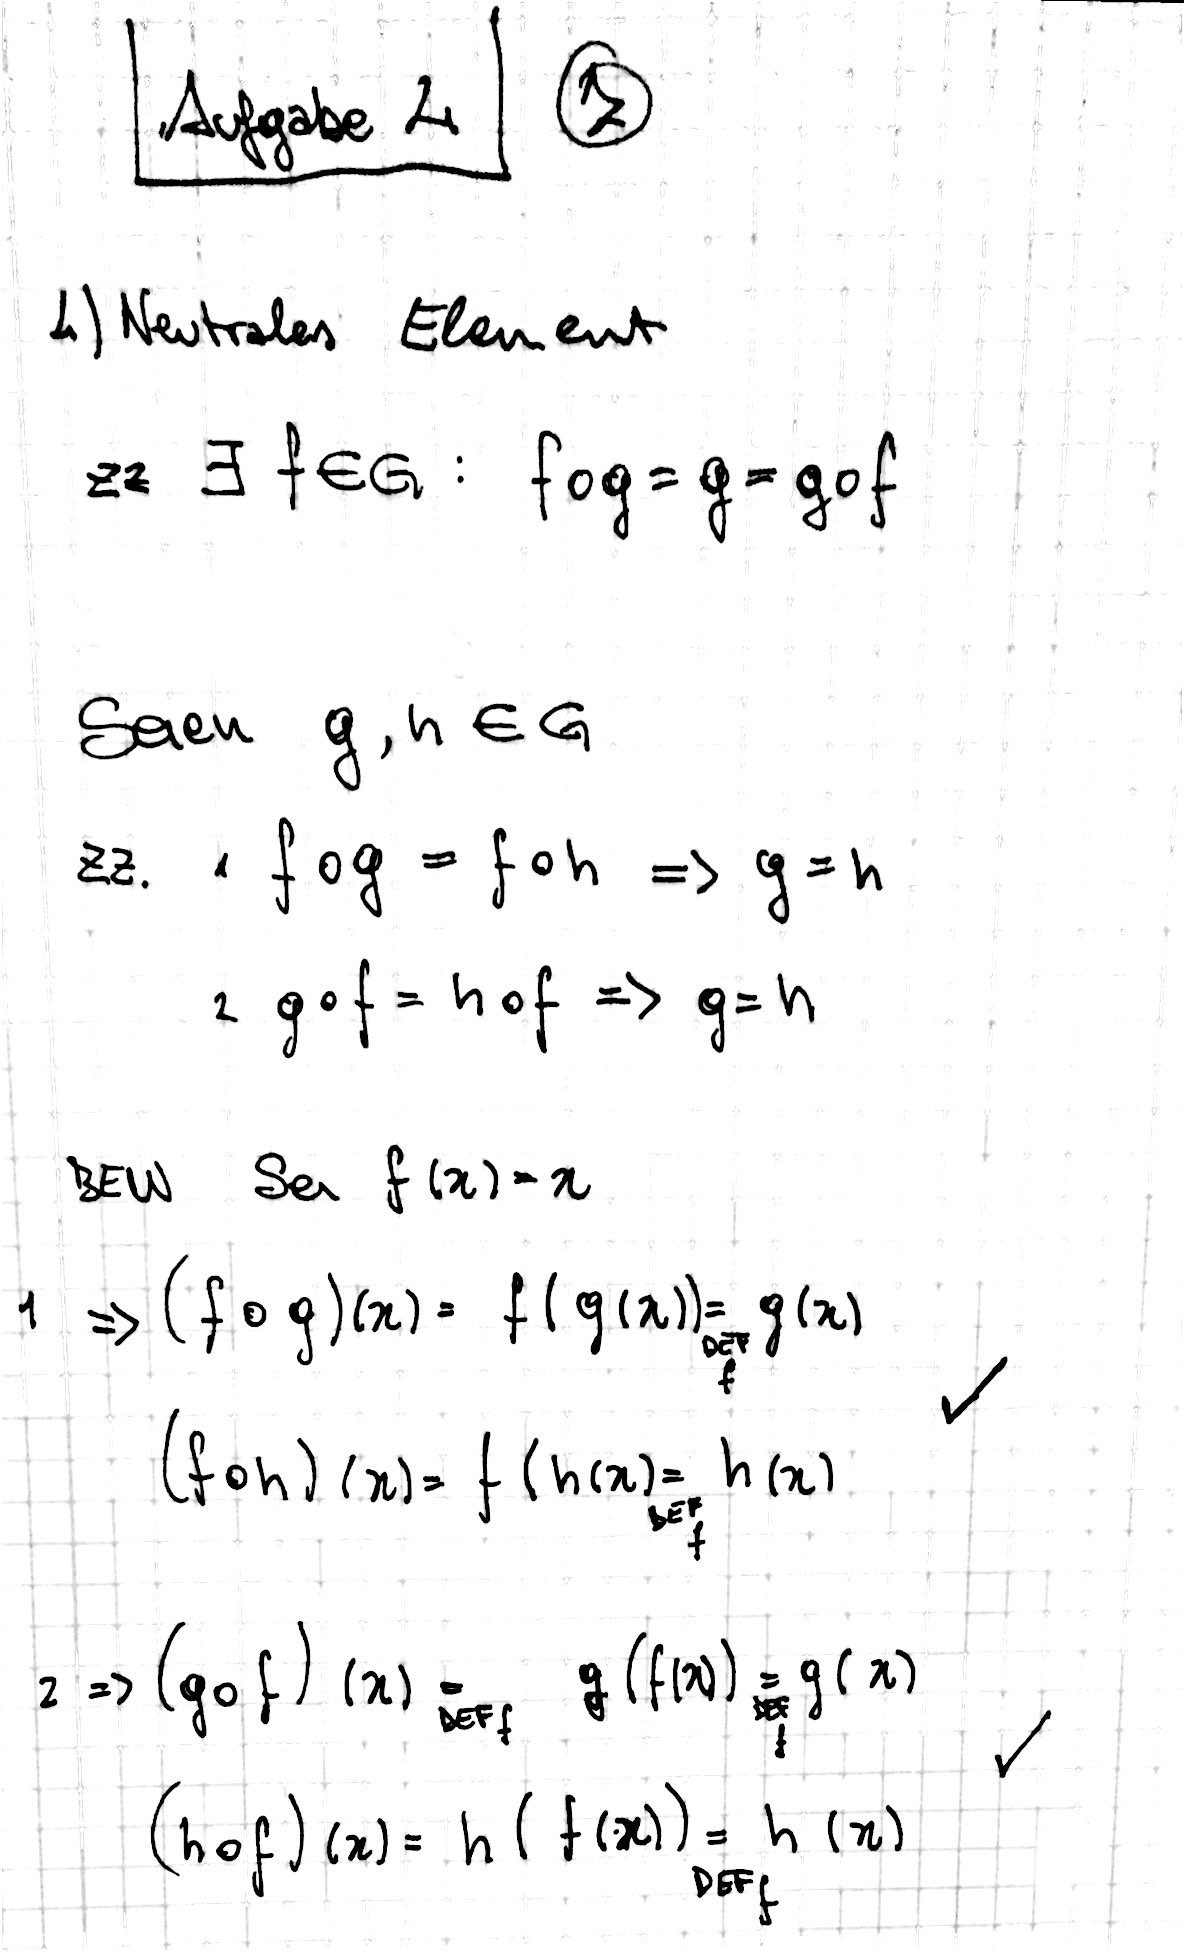 Aufgabe 1 ②
1) Neutrales Element
zz ∃ f∈G : f∘g = g = g∘f
Seien g, h ∈ G
ZZ. 1 f∘g = f∘h => g = h
2 g∘f = h∘f => g = h
BEW Sei f(x) = x
1 => (f∘g)(x) = f(g(x)) = DEF f g(x)
(f∘h)(x) = f(h(x) = DEF f h(x) ✓
2 => (g∘f)(x) = DEF f g(f(x)) = DEF f g(x)
(h∘f)(x) = h(f(x)) = DEF f h(x) ✓